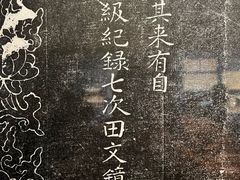 其来有自
級紀録七次田文鏡